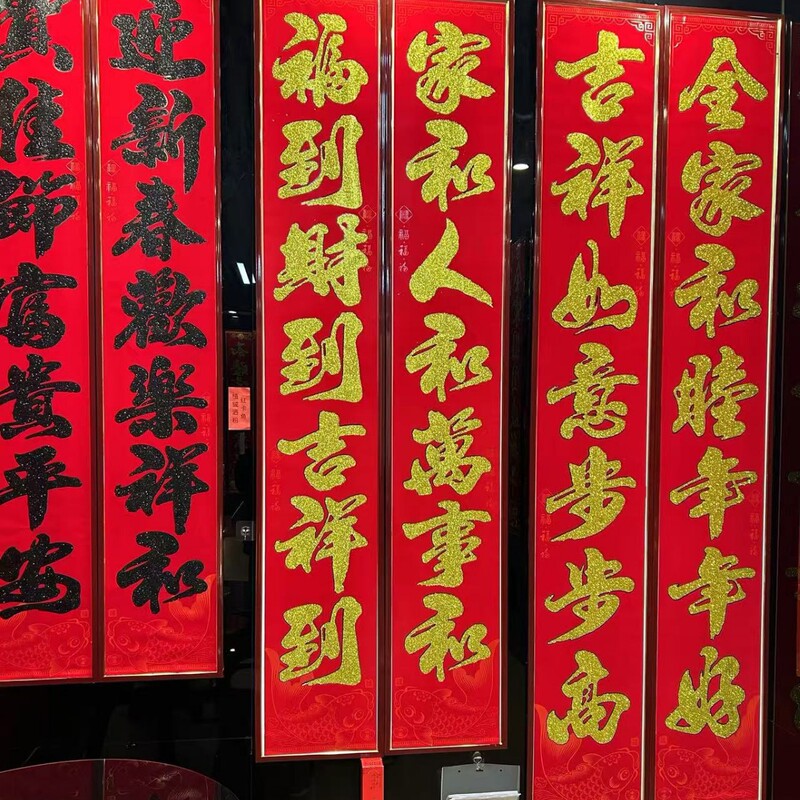 全家和睦年年好
吉祥如意步步高
家和人和萬事和
福到財到吉祥到
迎新春歡樂祥和
賀佳節富貴平安